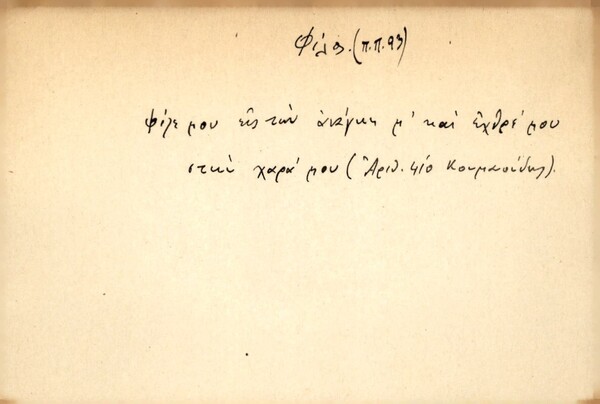 Φίλος. (Π.Π. 93)
Φίλε μου εἰς τὴν ἀνάγκη μ' καὶ ἐχθρέ μου
στὴν χαρά μου (Ἀριθ. 410 Κουμαούδης).